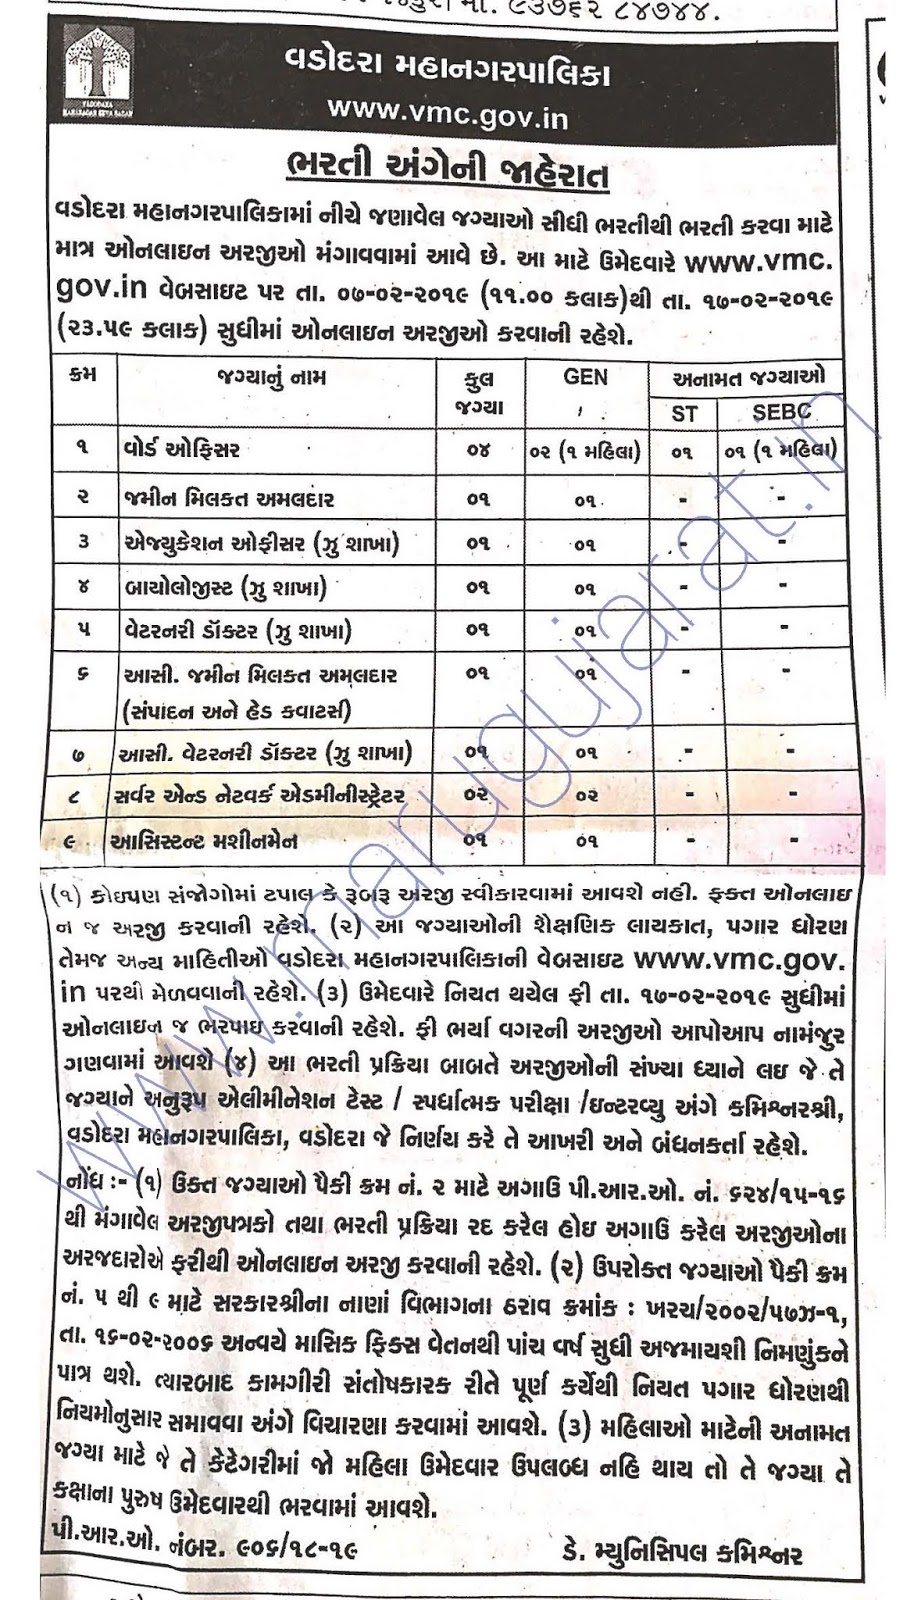 મો. ૯૩૭૬૨ ૮૪૭૪૪.
વડોદરા મહાનગરપાલિકા
www.vmc.gov.in
VADODARA
MAHANAGAR SEVA SADAN
ભરતી અંગેની જાહેરાત
વડોદરા મહાનગરપાલિકામાં નીચે જણાવેલ જગ્યાઓ સીધી ભરતીથી ભરતી કરવા માટે
માત્ર ઓનલાઇન અરજીઓ મંગાવવામાં આવે છે. આ માટે ઉમેદવારે www.vmc.
gov.in વેબસાઇટ પર તા. ૦૭-૦૨-૨૦૧૯ (૧૧.૦૦ કલાક)થી તા. ૧૭-૦૨-૨૦૧૯
(૨૩.૫૯ કલાક) સુધીમાં ઓનલાઇન અરજીઓ કરવાની રહેશે.
ક્રમ જગ્યાનું નામ કુલ જગ્યા GEN અનામત જગ્યાઓ
ST SEBC
૧ વોર્ડ ઓફિસર ૦૪ ૦૨ (૧ મહિલા) ૦૧ ૦૧ (૧ મહિલા)
૨ જમીન મિલકત અમલદાર ૦૧ ૦૧ - -
૩ એજ્યુકેશન ઓફીસર (ઝુ શાખા) ૦૧ ૦૧ - -
૪ બાયોલોજીસ્ટ (ઝુ શાખા) ૦૧ ૦૧ - -
૫ વેટરનરી ડૉક્ટર (ઝુ શાખા) ૦૧ ૦૧ - -
૬ આસી. જમીન મિલકત અમલદાર ૦૧ ૦૧ - -
(સંપાદન અને હેડ કવાટર્સ)
૭ આસી. વેટરનરી ડૉક્ટર (ઝુ શાખા) ૦૧ ૦૧ - -
૮ સર્વર એન્ડ નેટવર્ક એડમીનીસ્ટ્રેટર ૦૨ ૦૨ - -
૯ આસિસ્ટન્ટ મશીનમેન ૦૧ ૦૧ - -
(૧) કોઇપણ સંજોગોમાં ટપાલ કે રૂબરૂ અરજી સ્વીકારવામાં આવશે નહી. ફક્ત ઓનલાઇ
ન જ અરજી કરવાની રહેશે. (૨) આ જગ્યાઓની શૈક્ષણિક લાયકાત, પગાર ધોરણ
તેમજ અન્ય માહિતીઓ વડોદરા મહાનગરપાલિકાની વેબસાઇટ www.vmc.gov.
in પરથી મેળવવાની રહેશે. (૩) ઉમેદવારે નિયત થયેલ ફી તા. ૧૭-૦૨-૨૦૧૯ સુધીમાં
ઓનલાઇન જ ભરપાઇ કરવાની રહેશે. ફી ભર્યા વગરની અરજીઓ આપોઆપ નામંજુર
ગણવામાં આવશે (૪) આ ભરતી પ્રક્રિયા બાબતે અરજીઓની સંખ્યા ધ્યાને લઇ જે તે
જગ્યાને અનુરૂપ એલીમીનેશન ટેસ્ટ / સ્પર્ધાત્મક પરીક્ષા /ઇન્ટરવ્યુ અંગે કમિશ્નરશ્રી,
વડોદરા મહાનગરપાલિકા, વડોદરા જે નિર્ણય કરે તે આખરી અને બંધનકર્તા રહેશે.
નોંધ :- (૧) ઉક્ત જગ્યાઓ પૈકી ક્રમ નં. ૨ માટે અગાઉ પી.આર.ઓ. નં. ૬૨૪/૧૫-૧૬
થી મંગાવેલ અરજીપત્રકો તથા ભરતી પ્રક્રિયા રદ કરેલ હોઇ અગાઉ કરેલ અરજીઓના
અરજદારોએ ફરીથી ઓનલાઇન અરજી કરવાની રહેશે. (૨) ઉપરોક્ત જગ્યાઓ પૈકી ક્રમ
નં. ૫ થી ૯ માટે સરકારશ્રીના નાણાં વિભાગના ઠરાવ ક્રમાંક : ખરચ/૨૦૦૨/૫૭ઝ-૧,
તા. ૧૬-૦૨-૨૦૦૬ અન્વયે માસિક ફિક્સ વેતનથી પાંચ વર્ષ સુધી અજમાયશી નિમણુંકને
પાત્ર થશે. ત્યારબાદ કામગીરી સંતોષકારક રીતે પૂર્ણ કર્યેથી નિયત પગાર ધોરણથી
નિયમોનુસાર સમાવવા અંગે વિચારણા કરવામાં આવશે. (૩) મહિલાઓ માટેની અનામત
જગ્યા માટે જે તે કેટેગરીમાં જો મહિલા ઉમેદવાર ઉપલબ્ધ નહિ થાય તો તે જગ્યા તે
કક્ષાના પુરુષ ઉમેદવારથી ભરવામાં આવશે.
પી.આર.ઓ. નંબર. ૯૦૬/૧૮-૧૯ ડે. મ્યુનિસિપલ કમિશ્નર
www.marugujarat.in